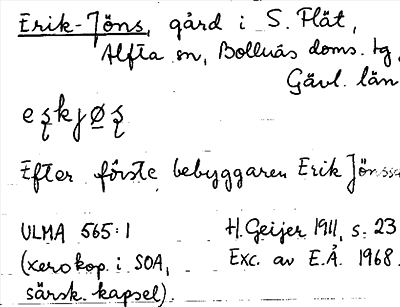 Erik-Jöns, gård i S. Flät,
Alfta sn, Bollnäs doms. tg,
Gävl. län
Efter förste bebyggaren Erik Jönsso
ULMA 565:1 H. Geijer 1911, s. 23
(xerokop. i SOA, Exc. av E.Å. 1968.
särsk. kapsel).